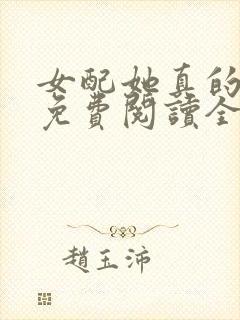 女配她真的
免費閱讀全
趙玉沛